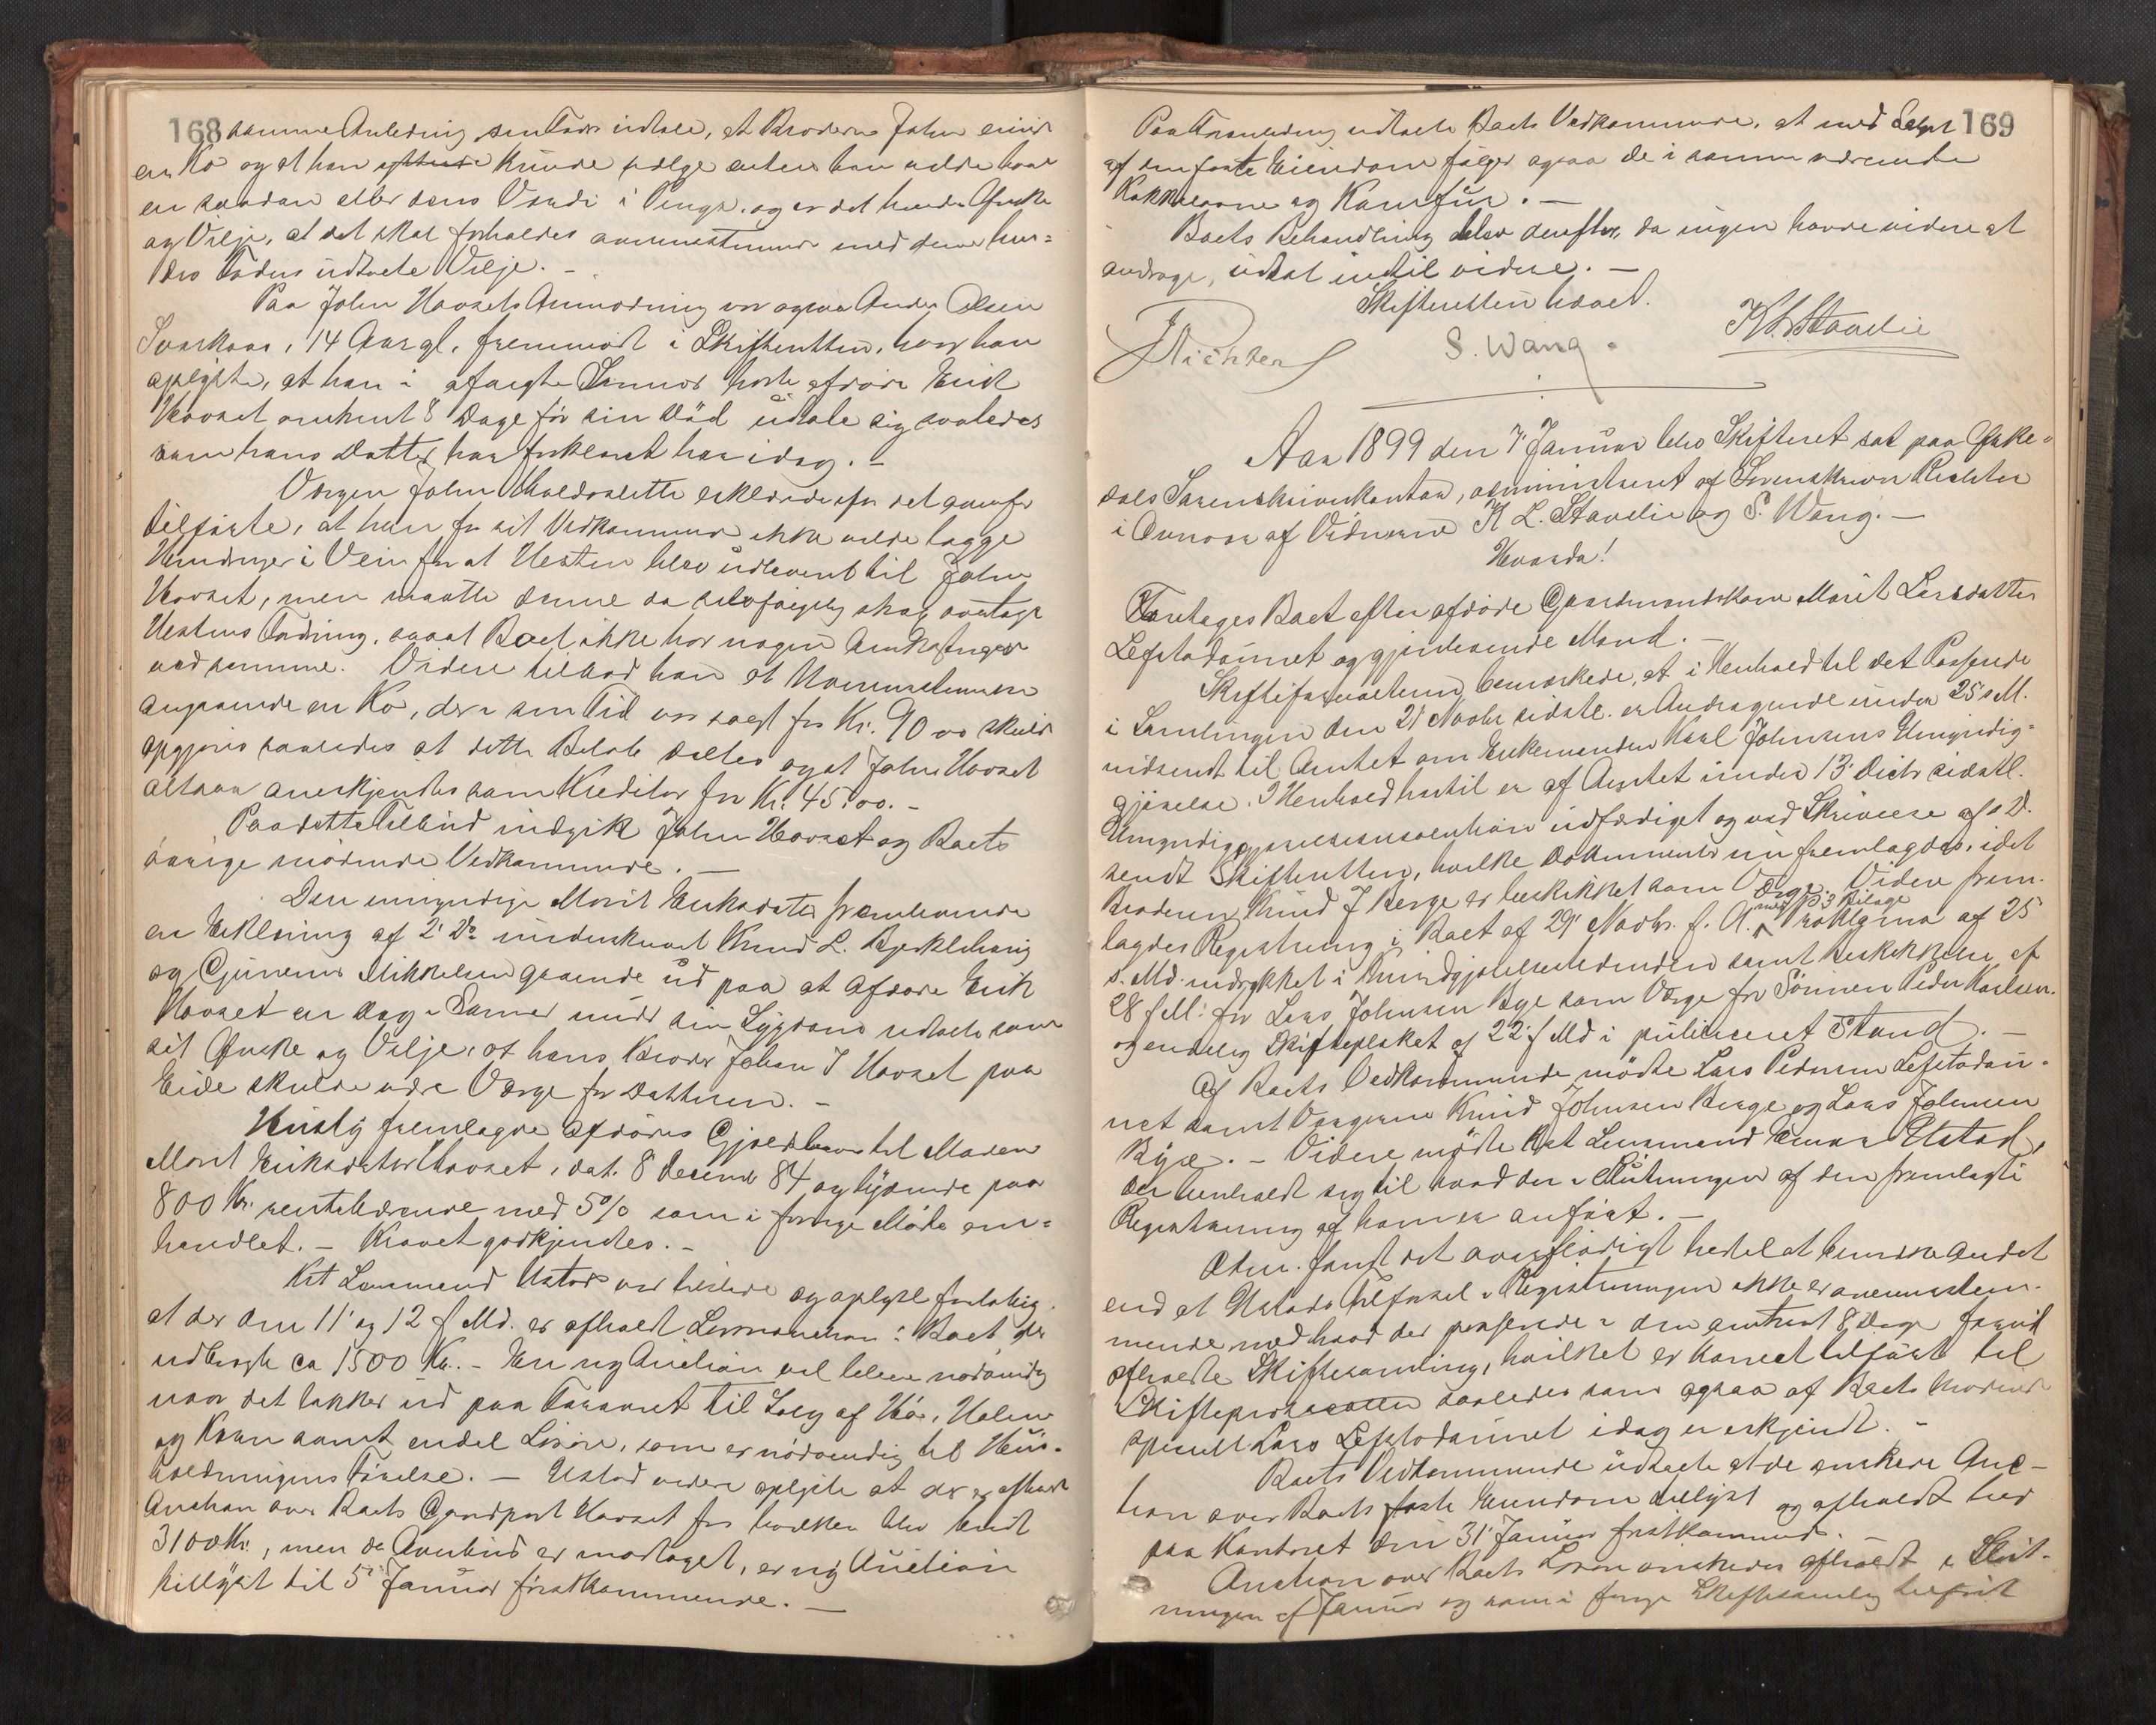 168
samme Anledning sin Fader udtale, at Broderen John eiend
en Ko og at han kunde vælge enten han vilde have
en saadan eller dens Værdi i Penge, og er det hendes Ønske
og Vilje, at det skal forholdes overensstemmende med denne hen-
des Faders udtalte Vilje. -
Paa John Hovsets Anmodning var ogsaa Anders Olsen
14 Aar gl. fremmødt i Skifteretten, hvor han
oplyste, at han i afvigte Sommer hørte afdøde Erik
Hovset omtrent 8 Dage før sin Død udtale sig saaledes
som hans Datter har forklaret her idag. -
Værgen John erklærede efter det ovenfor
tilførte, at han for sit Vedkommende ikke vilde lægge
Hindringer i Veien for at Hesten blev udleveret til John
Hovset, men maatte denne da selvfølgelig strax overtage
Hestens Fodring, saaat Boet ikke har nogen Omkostninger
ved samme. Videre tilbød han at Uoverensstemmelsen
angaaende en Ko, der i sin Tid var solgt for Kr. 90.00 skulde
opgjøres saaledes at dette Beløb deltes og at John Hovset
altsaa anerkjendtes som Kreditor for Kr. 45.00. -
Paa dette Tilbud indgik John Hovset og Boets
øvrige mødende Vedkommende. -
Den umyndige Marit Eriksdatter fremleverede
en Erklæring af 2' Ds. underskrevet Knud L.
og Gunerius Mikkelsen gaaende ud paa at afdøde Erik
Hovset en Dag i Sommer under sin Sygdom udtalte som
sit Ønske og Vilje, at hans Broder Johan J Hovset paa
Eide skulde være Værge for Datteren. -
Husly fremlagde afdødes Gjældsbrev til Moderen
Marit Eriksdatter Hovset, dat. 8 Decembr 84 og lydende paa
800 Kr. rentebærende med 5% som i forrige Møde om-
handlet. - Kravet godkjendtes. -
Kst Lensmand Ustad var tilstede og oplyste foreløbig,
at der den 11' og 12 f Md. er afholdt Løsøreauktion i Boet, der
udbragte ca 1500 Kr. - En ny Auction vil blive nødvendig
naar det lakker ud paa Foraaret til Salg af Hø, Halm
og Korn samt endel Løsøre, som er nødvendig til Hus-
holdningens Førelse. - Ustad videre oplyste at der er afholdt
Auction over Boets Gaardpart Hovset for hvilken blev budt
3100 Kr., men da Overbud er modtaget, er ny Auction
tillyst til 5' Januar førstkommende. -
169
Paa Foranledning udtalte Boets Vedkommende, at med Salget
af den faste Eiendom følger ogsaa de i samme værende
Kakkelovne og Komfur. -
Boets Behandling blev derefter, da ingen havde videre at
andrage, udsat indtil videre. -
Skifteretten hævet.
Richter S. Wang. K L Stavlie
Aar 1899 den 7' Januar blev Skifteret sat paa Ørke-
dals Sorenskriverkontor, administreret af Sorenskriver Richter
i Overvær af Vidnerne K L. Stavlie og S. Wang. -
Hvorda!
Foretages Boet efter afdøde Gaardmandskone Marit Larsdatter
Lefstadaunet og gjenlevende Mand. -
Skifteforvalteren bemærkede, at i Henhold til det Passerede
i Samlingen den 21' Novbr sidstl. er Andragende under 25 s M.
indsendt til Amtet om Enkemanden Karl Johnsens Umyndig-
gjørelse. I Henhold hertil er af Amtet under 13' Decbr sidstl.
Umyndiggjørelsesresolution udfærdiget og ved Skrivelse af s D.
sendt Skifteretten, hvilke Dokumenter nu fremlagdes, idet
Broderen Knud J Berge er beskikket som Værge. Videre frem-
lagdes Registrering i Boet af 29' Novbr. f. A. med 3 Bilage Proklama af 25
s. Md. indrykket i Kundgjørelsestidenden samt Beskikkelse af
28 f M: for Lars Johnsen Bye som Værge for Sønnen Peder Karlsen.
og endelig Skifteplakat af 22' f Md i publiceret Stand. -
Af Boets Vedkommende mødte Lars Pedersen Lefstadau-
net samt Værgerne Knud Johnsen Berge og Lars Johnsen
Bye. - Videre mødte Kst Lensmand Einar Ustad,
der henholdt sig til hvad der i Slutningen af den fremlagte
Registrering af ham er anført. -
Adm. fandt det overflødigt hertil at bemærke Andet
end at Ustads Tilførsel i Registreringen ikke er overensstem-
mende med hvad der passerede i den omtrent 8 Dage forud
afholdte Skiftesamling, hvilket er korrect tilført til
Skifteprotocollen saaledes som ogsaa af Boets mødende
specielt Lars Lefstadaunet idag er erkjendt. -
Boets Vedkommende udtalte at de ønskede Auc-
tion over Boets faste Eiendom tillyst og afholdt her
paa Kontoret den 31' Januar førstkommende. -
Auction over Boets Løsøre ønskedes afholdt i Slut-
ningen af Januar og som i forrige Skiftesamling tilført